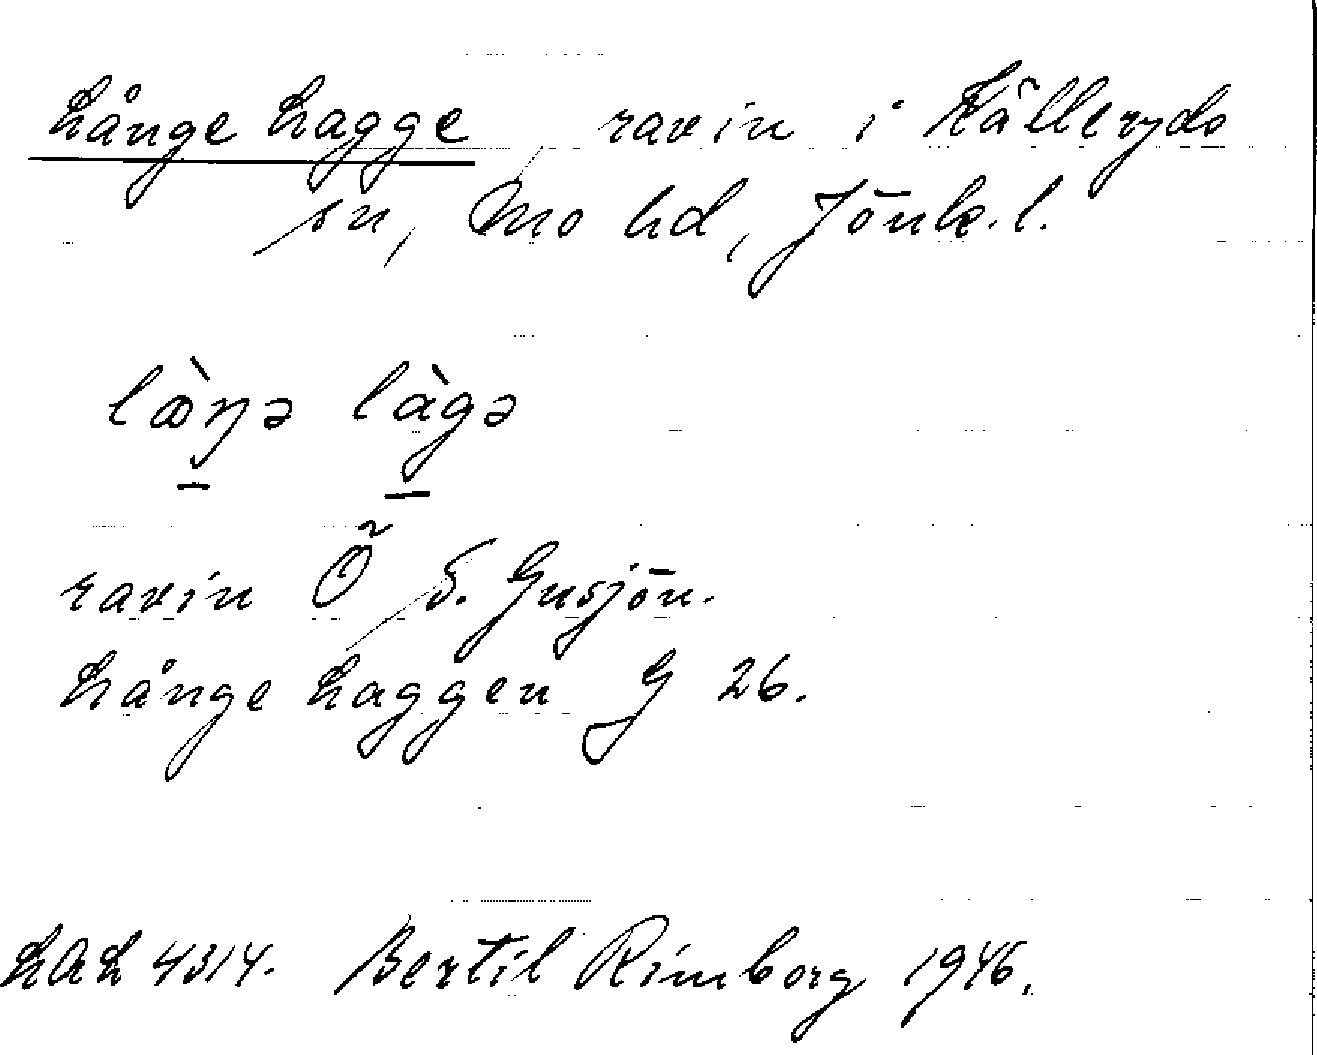 Långe Lagge, ravin i Källeryds
sn, Mo hd, Jönk. l.
lànə làgə
ravin Ö S. Gusjön.
Långe Laggen G 26.
LAL 4314. Bertil Rimborg 1946.